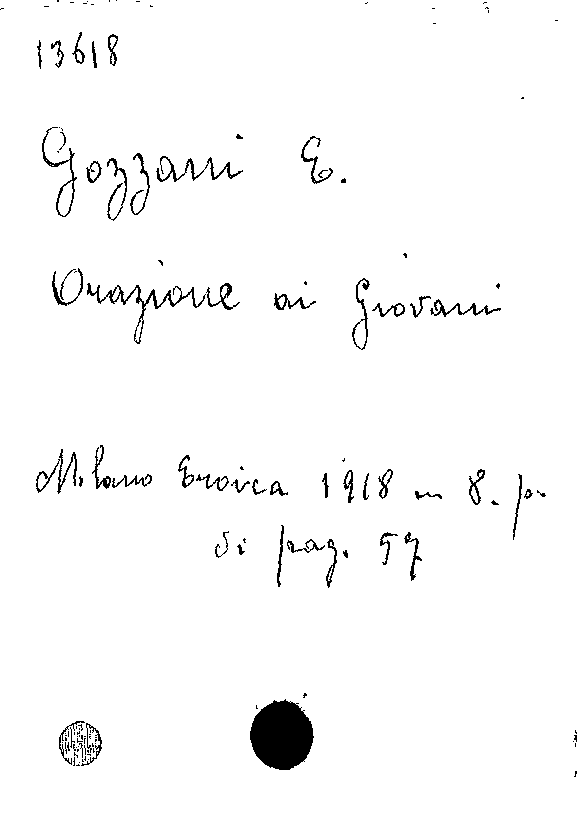 13618
Gozzani E.
Orazione ai Giovani
Milano Eroica 1918 in 8. p.
di pag. 57